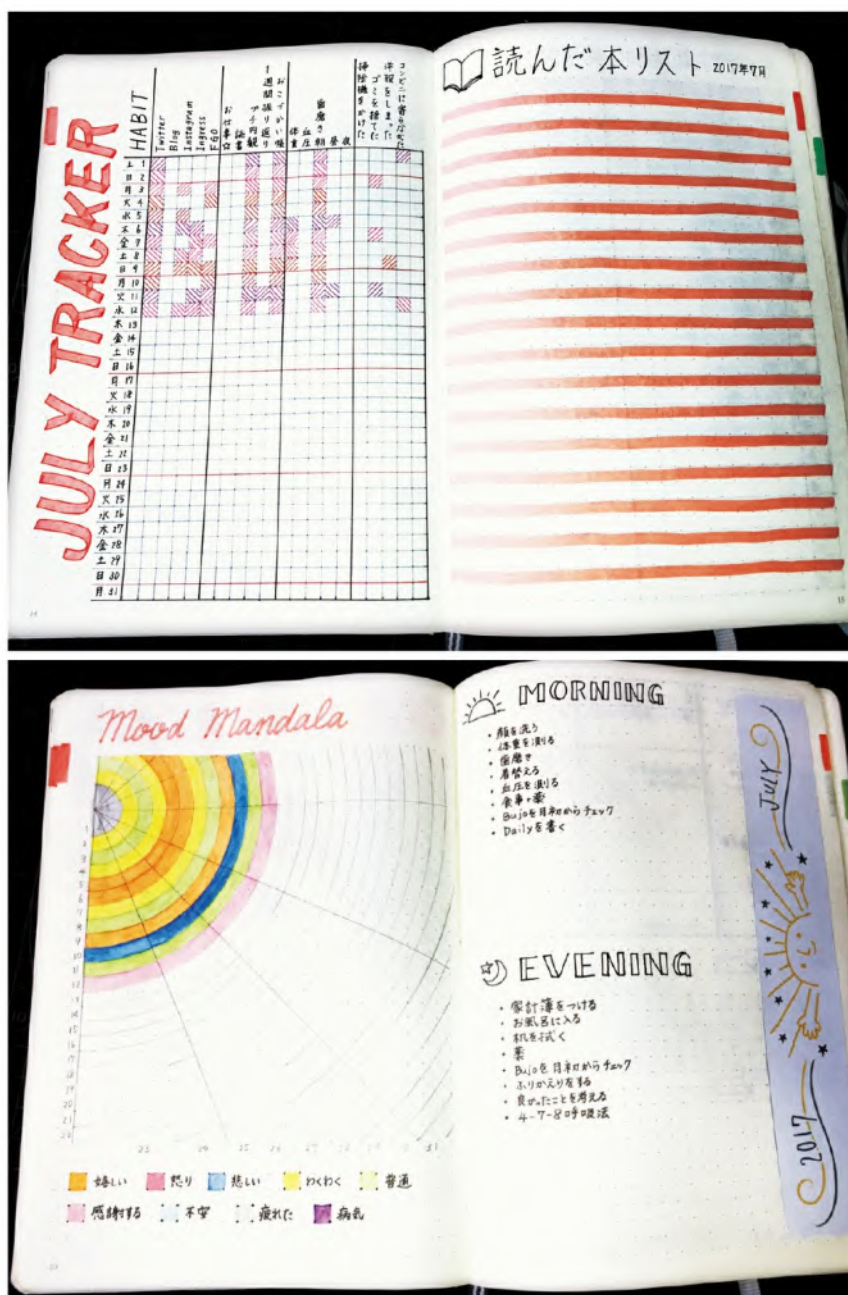 JULY TRACKER
HABIT
Twitter
Blog
Instagram
Ingress
FGO
お仕事☆
読書
プチ内観
1週間振り返り
おこづかい帳
体重
血圧
歯磨き 朝
昼
夜
掃除機をかけた
ゴミを捨てた
洋服をしまった
コンビニに寄らなかった
土 1
日 2
月 3
火 4
水 5
木 6
金 7
土 8
日 9
月 10
火 11
水 12
木 13
金 14
土 15
日 16
月 17
火 18
水 19
木 20
金 21
土 22
日 23
月 24
火 25
水 26
木 27
金 28
土 29
日 30
月 31
14
読んだ本リスト 2017年7月
15
Mood Mandala
1
2
3
4
5
6
7
8
9
10
11
12
13
14
15
16
17
18
19
20
21
22
23 24 25 26 27 28 29 30 31
嬉しい 怒り 悲しい わくわく 普通
感謝する 不安 疲れた 病気
MORNING
・顔を洗う
・体重を測る
・歯磨き
・着替える
・血圧を測る
・食事・薬
・Bujoを月初からチェック
・Dailyを書く
EVENING
・家計簿をつける
・お風呂に入る
・机を拭く
・薬
・Bujoを月初からチェック
・ふりかえりをする
・良かったことを考える
・4-7-8呼吸法
JULY
2017